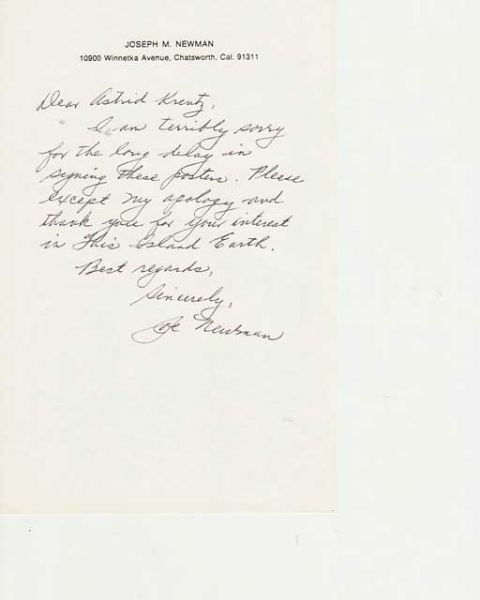 JOSEPH M. NEWMAN
10900 Winnetka Avenue, Chatsworth, Cal. 91311
Dear Astrid Krentz,
I am terribly sorry
for the long delay in
signing these posters. Please
except my apology and
thank you for your interest
in This Island Earth.
Best regards,
Sincerely,
Joe Newman